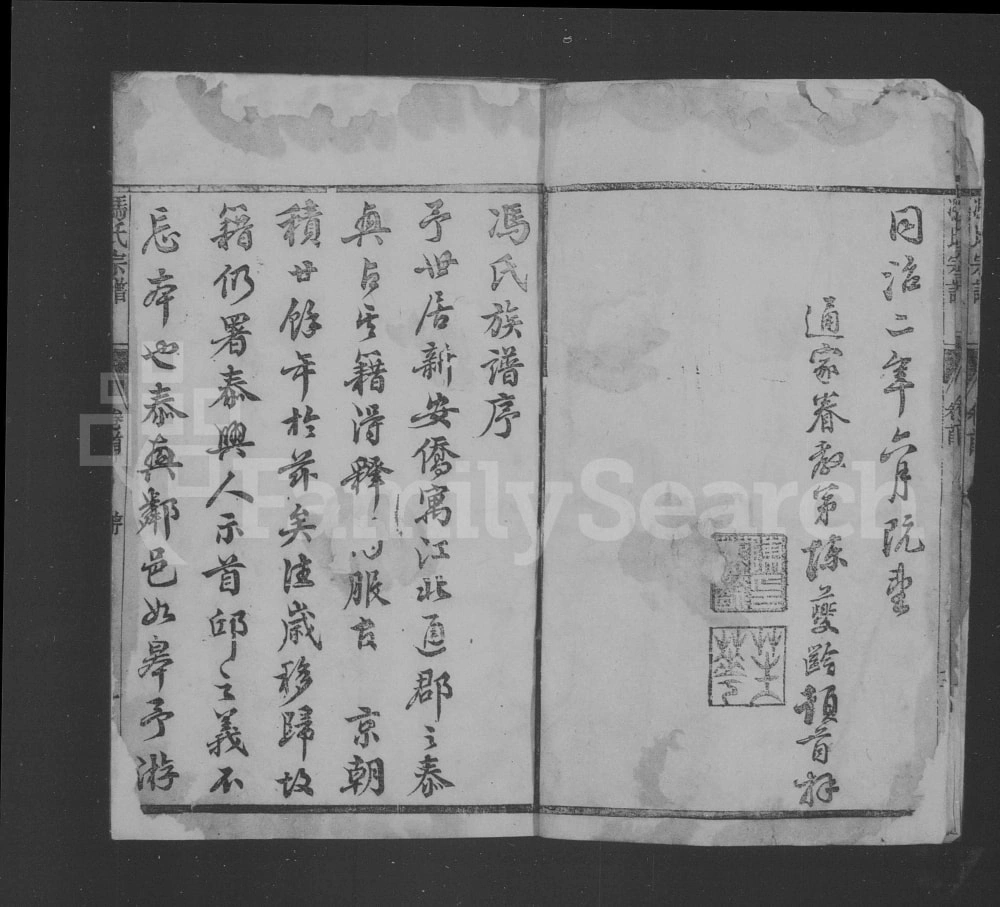 同治二年六月既望
通家眷教弟陳燮齡頓首拜
馮氏族譜序
予世居新安僑寓江北通郡之泰
興占其籍得釋 服官 京朝
積廿餘年於茲矣往歲移歸故
籍仍署泰興人示首邱之義不
忘本也泰興鄰邑如皋予游
馮氏宗譜
卷首
序
FamilySearch